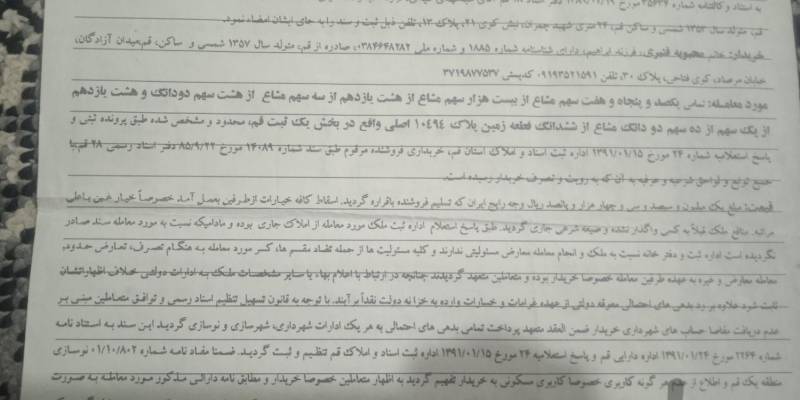 به استناد وکالتنامه شماره ۳۵۶۳۴ مورخ
قم، متولد سال ۱۳۵۳ شمسی و ساکن قم، ۲۴ متری شهید چمران، نبش کوی ۴۱، پلاک ۱۳، تلفن ذیل ثبت و سند را به جای ایشان امضاء نمود.
خریدار: خانم محبوبه قنبری، فرزند ابراهیم، دارای شناسنامه شماره ۱۸۸۵ و شماره ملی ۰۳۸۴۶۴۸۲۸۲، صادره از قم، متولد سال ۱۳۵۷ شمسی و ساکن، قم،میدان آزادگان،
خیابان مرصاد، کوی فتاحی، پلاک ۳۰، تلفن ۰۹۱۹۳۵۲۱۵۹۱ کدپستی ۳۷۱۹۸۷۷۵۳۷
مورد معامله: تمامی یکصد و پنجاه و هفت سهم مشاع از بیست هزار سهم مشاع از هشت یازدهم از سه سهم مشاع از هشت سهم دودانگ و هشت یازدهم
از یک سهم از ده سهم دو دانگ مشاع از ششدانگ قطعه زمین پلاک ۱۰۴۹۴ اصلی واقع در بخش یک ثبت قم، محدود و مشخص شده طبق پرونده ثبتی و
پاسخ استعلامیه شماره ۲۴ مورخ ۱۳۹۱/۰۱/۱۵ اداره ثبت اسناد و املاک استان قم، خریداری فروشنده مرقوم طبق سند شماره ۱۴۰۸۹ مورخ ۸۵/۹/۲۲ دفتر اسناد رسمی ۲۸ قم.با
جمیع توابع و لواحق شرعیه و عرفیه به آن که به رویت و تصرف خریدار رسیده است.
قیمت: مبلغ یک میلیون و سیصد و سی و چهار هزار و پانصد ریال وجه رایج ایران که تسلیم فروشنده باقراره گردید. اسقاط کافه خیارات ازطرفین بعمل آمد خصوصاً خیار غبن باعلی
مراتبه. منافع ملک قبلاً به کسی واگذار نشده و صیغه شرعی جاری گردید. طبق پاسخ استعلام اداره ثبت ملک مورد معامله از املاک جاری بوده و مادامیکه نسبت به مورد معامله سند صادر
نگردیده است اداره ثبت و دفتر خانه نسبت به ملک و انجام معامله معارض مسئولیتی ندارند و کلیه مسئولیت ها از جمله مفاد مقسم ها، کسر مورد معامله به هنگام تصرف، تعارض حدود،
معامله معارض و غیره به عهده طرفین معامله خصوصا خریدار بوده و متعاملین متعهد گردیدند چنانچه در ارتباط با اعلام بهاء یا سایر مشخصات ملک به ادارات دولتی خلاف اظهاراتشان
ثابت شود علاوه بر رد بدهی های احتمالی معوقه دولتی از عهده غرامات و خسارات وارده به خزانه دولت نقداً بر آیند. با توجه به قانون تسهیل تنظیم اسناد رسمی و توافق متعاملین مبنی بر
عدم دریافت مفاصا حساب های شهرداری خریدار ضمن العقد متعهد پرداخت تمامی بدهی های احتمالی به هر یک ادارات شهرداری، شهرسازی و نوسازی گردید این سند به استناد نامه
شماره ۲۲۶۴ مورخ ۱۳۹۱/۰۱/۲۴ اداره دارایی قم و پاسخ استعلامیه ۲۴ مورخ ۱۳۹۱/۰۱/۱۵ اداره ثبت اسناد و املاک قم تنظیم و ثبت گردید. ضمنا مفاد نامه شماره ۰۱/۱۰/۸۰۲ نوسازی
منطقه یک قم و اطلاع از هر گونه کاربری خصوصا کاربری مسکونی به خریدار تفهیم گردید به اظهار متعاملین خصوصا خریدار و مطابق نامه دارائی مذکور مورد معامله به صورت